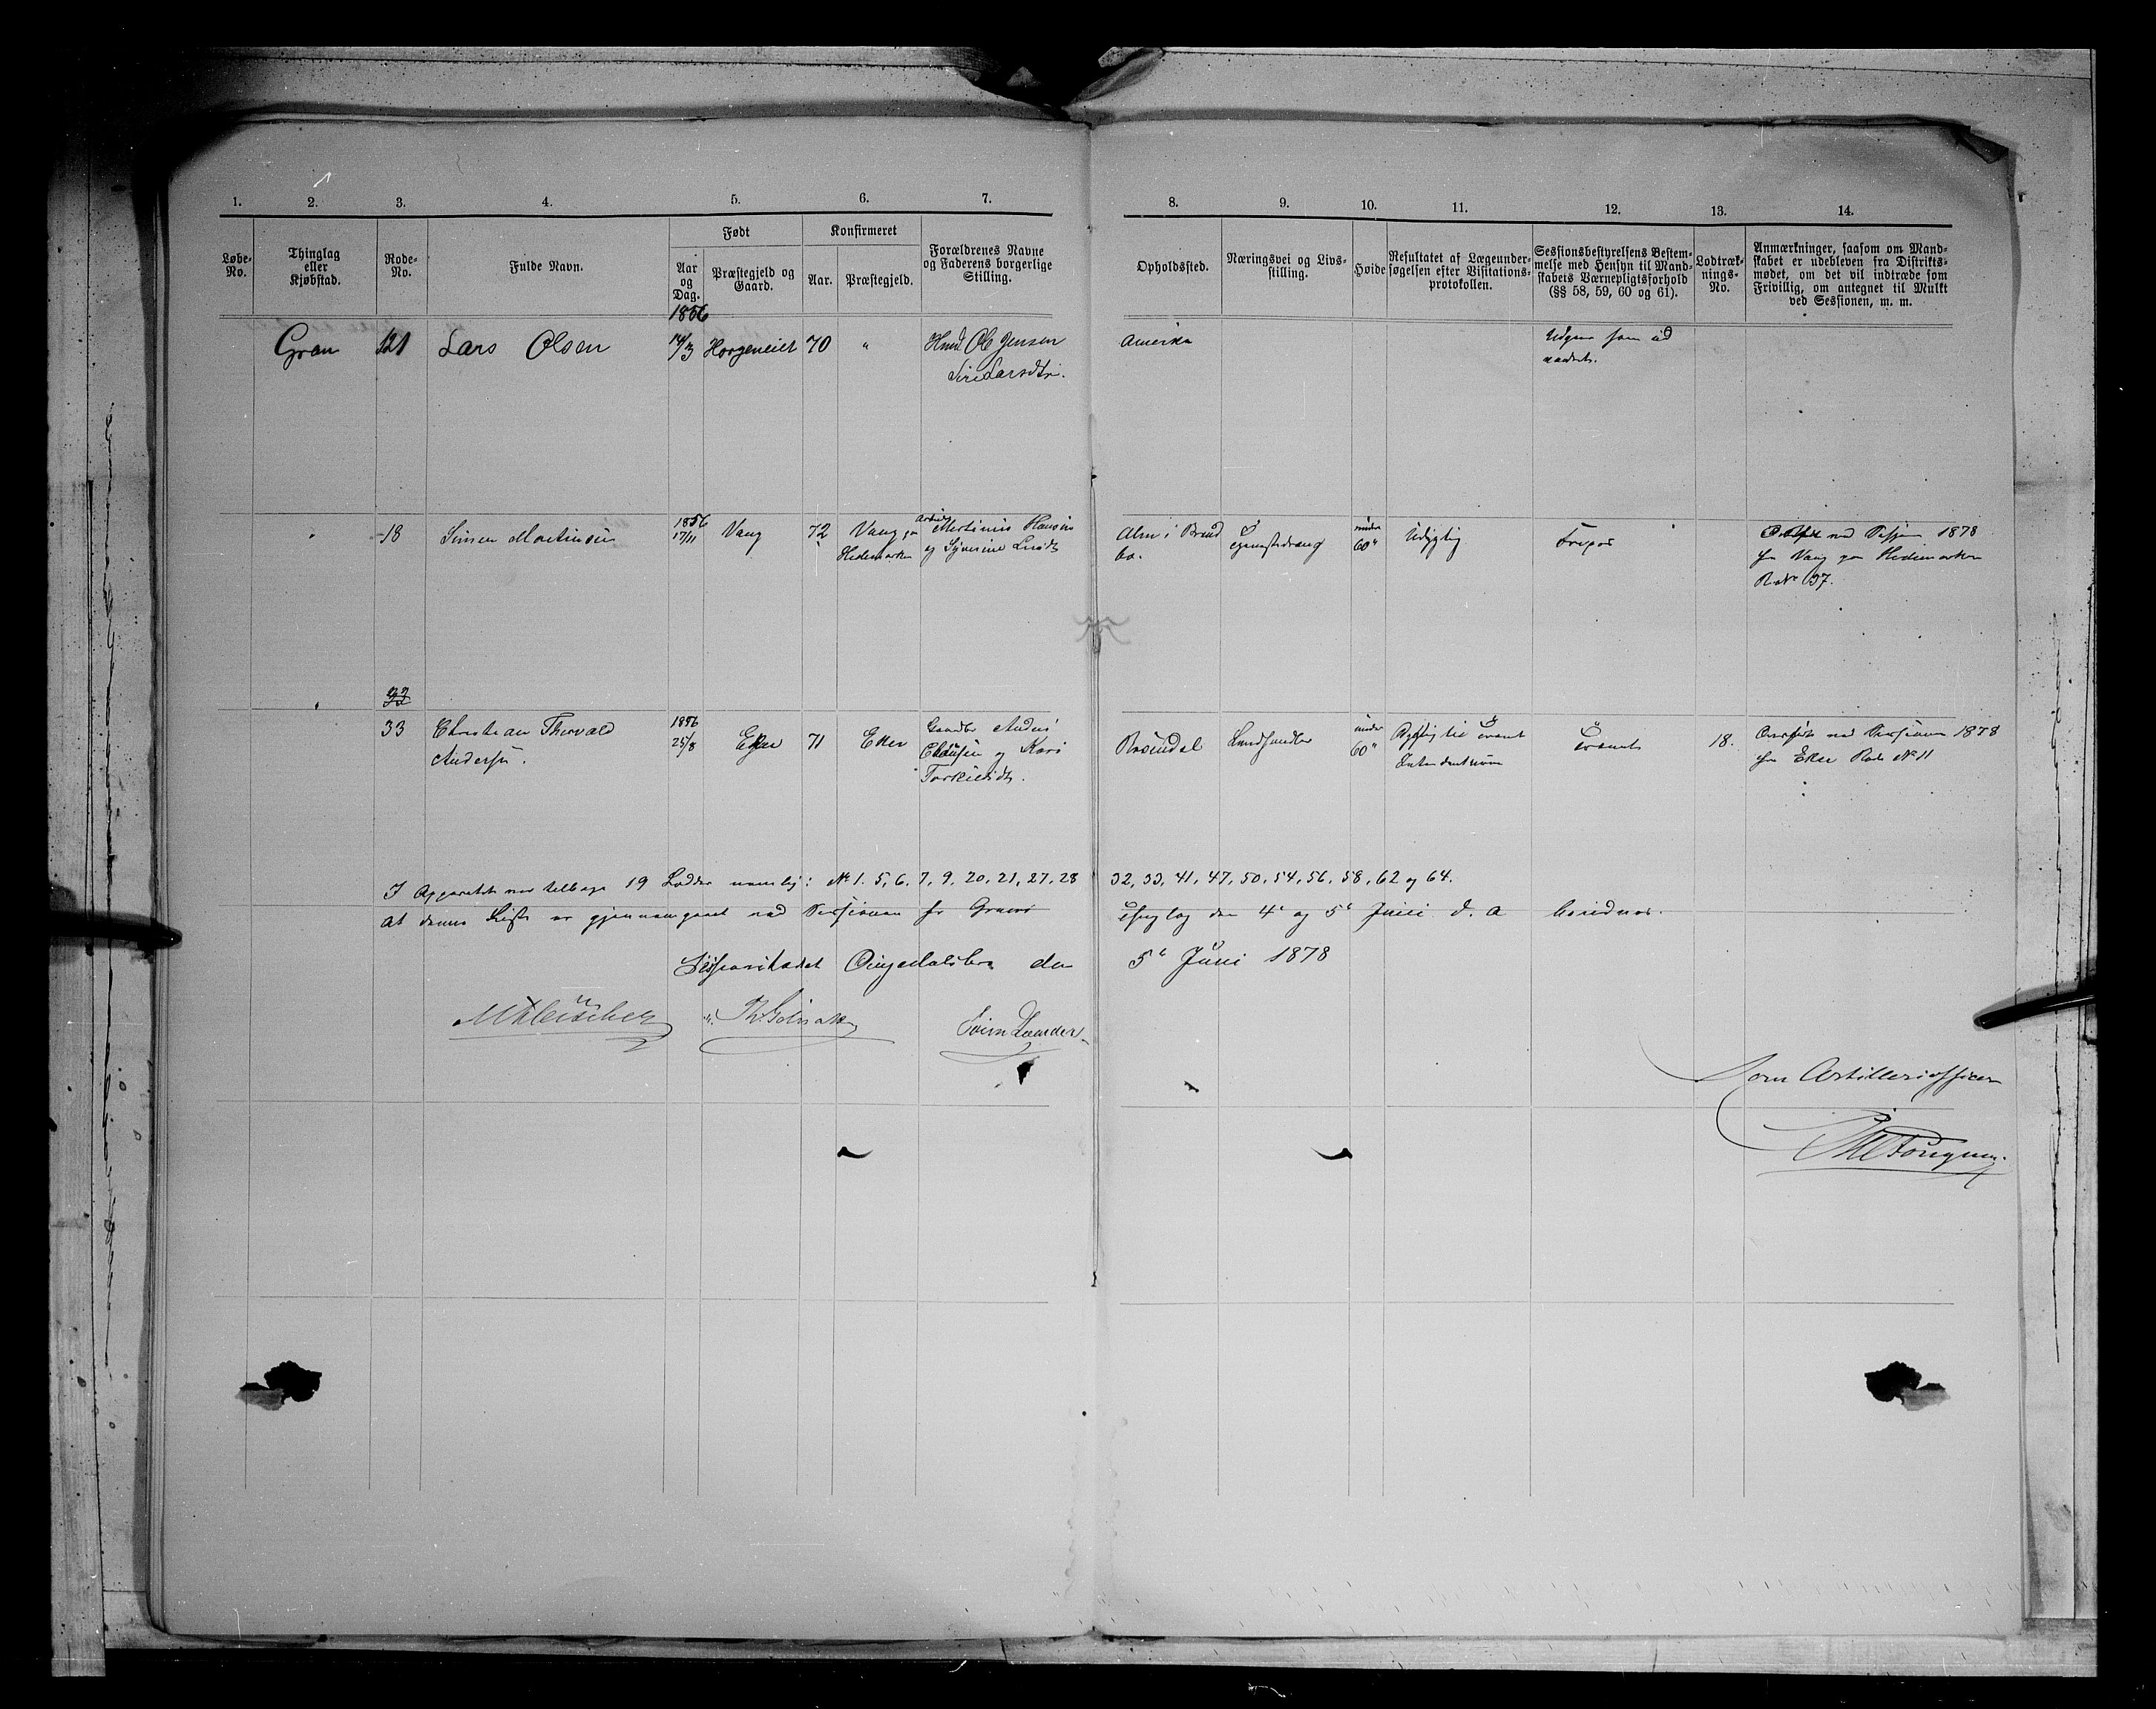 1. 2. 3. 4. 5. 6. 7. 8. 9. 10. 11. 12. 13. 14.
Løbe-No.
Thinglag eller Kjøbstad.
Rode-No.
Fulde Navn.
Født
Aar og Dag.
Præstegjeld og Gaard.
Konfirmeret
Aar.
Præstegjeld.
Forældrenes Navne og Faderens borgerlige Stilling.
Opholdssted.
Næringsvei og Livsstilling.
Høide
Resultatet af Lægeundersøgelsen efter Visitationsprotokollen.
Sessionsbestyrelsens Bestemmelse med Hensyn til Mandskabets Værnepligtsforhold (§§ 58, 59, 60 og 61).
Lodtræknings-No.
Anmærkninger, saasom om Mandskabet er udebleven fra Distriktsmødet, om det vil indtræde som Frivillig, om antegnet til Mulkt ved Sessionen, m. m.
1856
Gran 121 Lars Olsen 14/3 Horgeneiet 70 " Hmd. Ole Jensen Amerika Udgaar som ud
Siri Larsdtr. vandret.
18 Simen Martinsen 1856 17/11 Vang 72 Vang paa Hedemarken
Martinus Hansen og
Alm i Brandbo. under 60" Udygtig Fripas
1878
fra Vang paa Hedemarken
R. No 97.
33 Christian Thorvald
Andersen.
1856
25/8 Eker 71 Eker Gaardbr Anders
Clausen og Kari
Torkildsdtr.
Røisndal Landhandler under 60" Dygtig til Trænet
Intendanturen
Trænet 18. Overført ved Sessionen 1878
fra Eker Rode No 11
I Apparatet var tilbage 19 Lodder nemlig: No 1. 5, 6, 7, 9, 20, 21, 27, 28 32, 33, 41, 47, 50, 54, 56, 58, 62 og 64.
At denne Liste er gjennemgaaet ved Sessionen for Grans Thinglag den 4de og 5te Juni d. A. bevidnes.
Sessionsstedet den 5te Juni 1878
Som Artilleriofficer